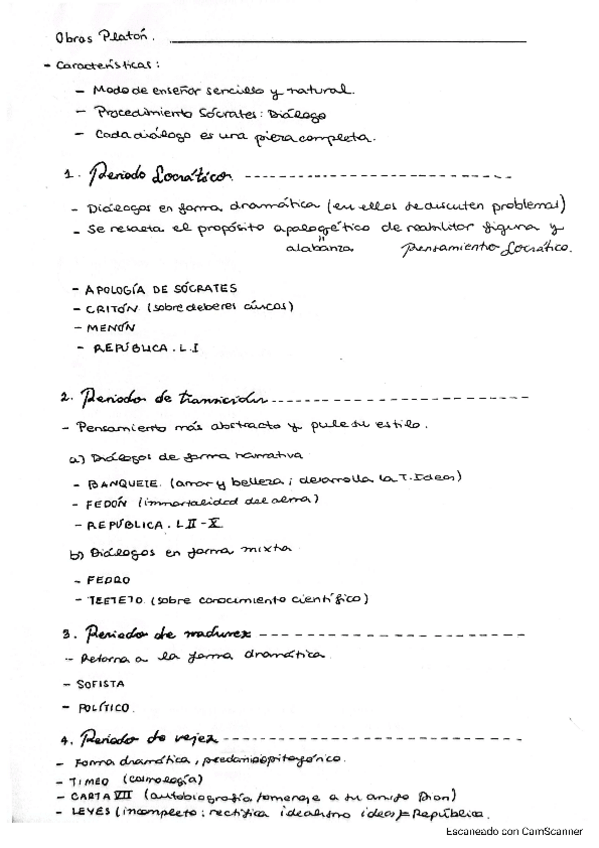 Obras Platón.
- Características:
- Modo de enseñar sencillo y natural.
- Procedimiento Sócrates: Diálogo
- Cada diálogo es una pieza completa.
1. Periodo Socrático.
- Diálogos en forma dramática (en ellos se discuten problemas)
- Se resalta el propósito apologético de reabilitar figura y
alabanza Pensamiento Socrático.
- APOLOGÍA DE SÓCRATES
- CRITÓN (sobre deberes cívicos)
- MENÓN
- REPÚBLICA. L.I
2. Periodo de transición
- Pensamiento más abstracto y pule su estilo.
a) Diálogos de forma narrativa
- BANQUETE. (amor y belleza; desarrolla la T. Ideas)
- FEDÓN (inmortalidad del alma)
- REPÚBLICA. L II - X
b) Diálogos en forma mixta
- FEDRO
- TEETETO (sobre conocimiento científico)
3. Periodo de madurez
- Retorna a la forma dramática
- SOFISTA
- POLÍTICO.
4. Periodo de vejez
- Forma dramática, predominio pitagórico.
- TIMEO (cosmología)
- CARTA VII (autobiografía/homenaje a su amigo Dion)
- LEYES (incompleto; rectifica idealismo ideas República.
Escaneado con CamScanner